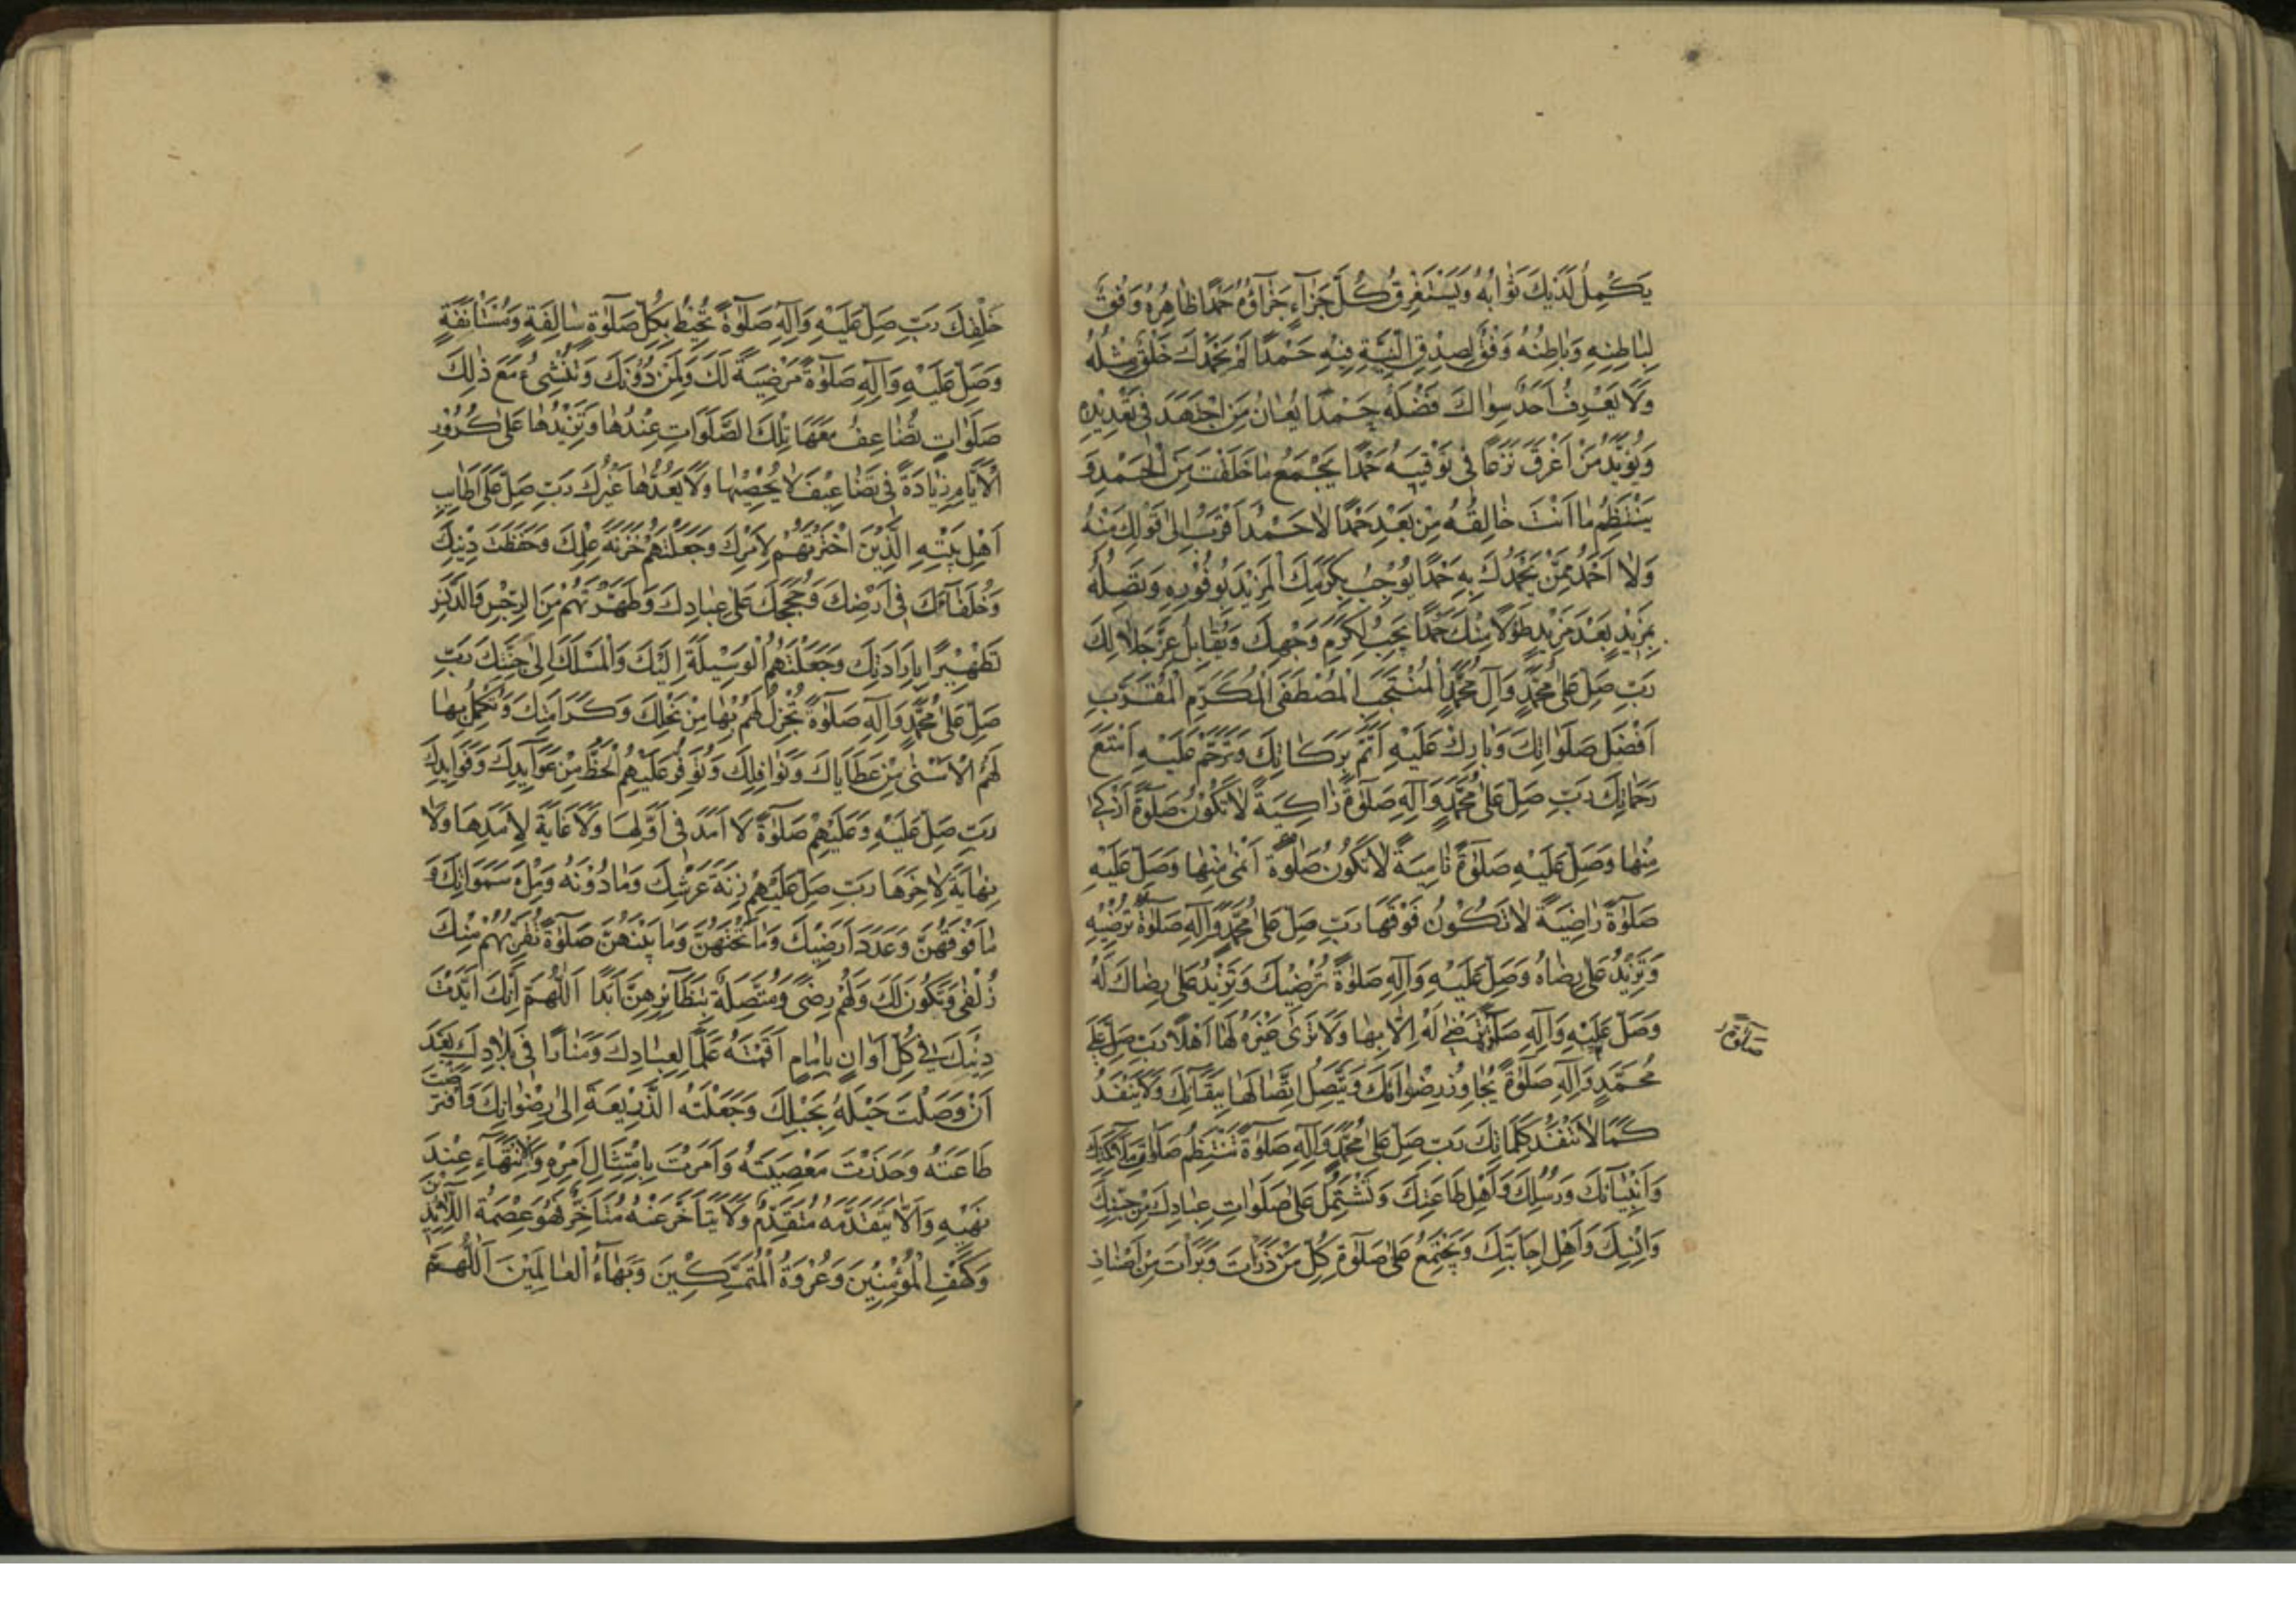 يَكْمِلُ لَدَيْكَ ثَوَابُهُ وَيَسْتَغْرِقُ كُلَّ جَزَآءٍ جَزَآؤُهُ حَمْدًا ظَاهِرُهُ وَفْقٌ
لِبَاطِنِهِ وَبَاطِنُهُ وَفْقٌ لِصِدْقِ النِّيَّةِ فِيهِ حَمْدًا لَمْ يَحْمَدْكَ خَلْقٌ مِثْلَهُ
وَلَا يَعْرِفُ أَحَدٌ سِوَاكَ فَضْلَهُ حَمْدًا يُعَانُ مَنِ اجْتَهَدَ فِي تَعْدِيدِهِ
وَيُؤَيَّدُ مَنْ أَغْرَقَ نَزْعًا فِي تَوْفِيَتِهِ حَمْدًا يَجْمَعُ مَا خَلَقْتَ مِنَ الْحَمْدِ وَ
يَنْتَظِمُ مَا أَنْتَ خَالِقُهُ مِنْ بَعْدِ حَمْدًا لَا حَمْدَ أَقْرَبُ إِلَى قَوْلِكَ مِنْهُ
وَلَا أَحْمَدَ مِمَّنْ يَحْمَدُكَ بِهِ حَمْدًا يُوجِبُ بِكَرَمِكَ الْمَزِيدَ بِوُفُورِهِ وَتَصِلُهُ
بِمَزِيدٍ بَعْدَ مَزِيدٍ طَوْلًا مِنْكَ حَمْدًا يَجِبُ لِكَرَمِ وَجْهِكَ وَيُقَابِلُ عِزَّ جَلَالِكَ
رَبِّ صَلِّ عَلَى مُحَمَّدٍ وَآلِ مُحَمَّدٍ الْمُنْتَجَبِ الْمُصْطَفَى الْمُكَرَّمِ الْمُقَرَّبِ
أَفْضَلَ صَلَوَاتِكَ وَبَارِكْ عَلَيْهِ أَتَمَّ بَرَكَاتِكَ وَتَرَحَّمْ عَلَيْهِ أَمْتَعَ
رَحَمَاتِكَ رَبِّ صَلِّ عَلَى مُحَمَّدٍ وَآلِهِ صَلٰوةً زَاكِيَةً لَا تَكُونُ صَلٰوةٌ أَزْكَى
مِنْهَا وَصَلِّ عَلَيْهِ صَلٰوةً نَامِيَةً لَا تَكُونُ صَلٰوةٌ أَنْمَى مِنْهَا وَصَلِّ عَلَيْهِ
صَلٰوةً رَاضِيَةً لَا تَكُونُ فَوْقَهَا رَبِّ صَلِّ عَلَى مُحَمَّدٍ وَآلِهِ صَلٰوةً تُرْضِيهِ
وَتَزِيدُ عَلَى رِضَاهُ وَصَلِّ عَلَيْهِ وَآلِهِ صَلٰوةً تُرْضِيكَ وَتَزِيدُ عَلَى رِضَاكَ لَهُ
وَصَلِّ عَلَيْهِ وَآلِهِ صَلٰوةً لَا تَرْضَى لَهُ إِلَّا بِهَا وَلَا تَرَى غَيْرَهُ لَهَا أَهْلًا رَبِّ صَلِّ عَلَى
مُحَمَّدٍ وَآلِهِ صَلٰوةً تُجَاوِزُ رِضْوَانَكَ وَيَتَّصِلُ اتِّصَالُهَا بِبَقَائِكَ وَلَا يَنْفَدُ
كَمَا لَا تَنْفَدُ كَلِمَاتُكَ رَبِّ صَلِّ عَلَى مُحَمَّدٍ وَآلِهِ صَلٰوةً تَنْتَظِمُ صَلَوَاتِ مَلَآئِكَتِكَ
وَأَنْبِيَآئِكَ وَرُسُلِكَ وَأَهْلِ طَاعَتِكَ وَتَشْتَمِلُ عَلَى صَلَوَاتِ عِبَادِكَ مِنْ جِنِّكَ
وَإِنْسِكَ وَأَهْلِ إِجَابَتِكَ وَتَجْتَمِعُ عَلَى صَلٰوةِ كُلِّ مَنْ ذَرَأْتَ وَبَرَأْتَ مِنْ أَصْنَافِ
خَلْقِكَ رَبِّ صَلِّ عَلَيْهِ وَآلِهِ صَلٰوةً تُحِيطُ بِكُلِّ صَلٰوةٍ سَالِفَةٍ وَمُسْتَأْنَفَةٍ
وَصَلِّ عَلَيْهِ وَآلِهِ صَلٰوةً مَرْضِيَّةً لَكَ وَلِمَنْ دُونَكَ وَتُنْشِىءُ مَعَ ذٰلِكَ
صَلَوَاتٍ تُضَاعِفُ مَعَهَا تِلْكَ الصَّلَوَاتِ عِنْدَهَا وَتَزِيدُهَا عَلَى كُرُورِ
الْأَيَّامِ زِيَادَةً فِي تَضَاعِيفَ لَا يُحْصِيهَا وَلَا يَعُدُّهَا غَيْرُكَ رَبِّ صَلِّ عَلَى أَطَايِبِ
أَهْلِ بَيْتِهِ الَّذِينَ اخْتَرْتَهُمْ لِأَمْرِكَ وَجَعَلْتَهُمْ خَزَنَةَ عِلْمِكَ وَحَفَظَةَ دِينِكَ
وَخُلَفَآءَكَ فِي أَرْضِكَ وَحُجَجَكَ عَلَى عِبَادِكَ وَطَهَّرْتَهُمْ مِنَ الرِّجْسِ وَالدَّنَسِ
تَطْهِيرًا بِإِرَادَتِكَ وَجَعَلْتَهُمُ الْوَسِيلَةَ إِلَيْكَ وَالْمَسْلَكَ إِلَى جَنَّتِكَ رَبِّ
صَلِّ عَلَى مُحَمَّدٍ وَآلِهِ صَلٰوةً تُجْزِلُ لَهُمْ بِهَا مِنْ نِحَلِكَ وَكَرَامَتِكَ وَتُكْمِلُ بِهَا
لَهُمُ الْأَسْنَى مِنْ عَطَايَاكَ وَنَوَافِلِكَ وَتُوَفِّرُ عَلَيْهِمُ الْحَظَّ مِنْ عَوَآيِدِكَ وَفَوَايِدِكَ
رَبِّ صَلِّ عَلَيْهِ وَعَلَيْهِمْ صَلٰوةً لَا أَمَدَ فِي أَوَّلِهَا وَلَا غَايَةَ لِأَمَدِهَا وَلَا
نِهَايَةَ لِآخِرِهَا رَبِّ صَلِّ عَلَيْهِمْ زِنَةَ عَرْشِكَ وَمَا دُونَهُ وَمِلْءَ سَمَوَاتِكَ وَ
مَا فَوْقَهُنَّ وَعَدَدَ أَرَضِيكَ وَمَا تَحْتَهُنَّ وَمَا بَيْنَهُنَّ صَلٰوةً تُقَرِّبُهُمْ مِنْكَ
زُلْفَى وَتَكُونُ لَكَ وَلَهُمْ رِضًى وَمُتَّصِلَةً بِنَظَآئِرِهِنَّ أَبَدًا اَللّٰهُمَّ إِنَّكَ أَيَّدْتَ
دِينَكَ فِي كُلِّ أَوَانٍ بِإِمَامٍ أَقَمْتَهُ عَلَمًا لِعِبَادِكَ وَمَنَارًا فِي بِلَادِكَ بَعْدَ
أَنْ وَصَلْتَ حَبْلَهُ بِحَبْلِكَ وَجَعَلْتَهُ الذَّرِيعَةَ إِلَى رِضْوَانِكَ وَافْتَرَضْتَ
طَاعَتَهُ وَحَذَّرْتَ مَعْصِيَتَهُ وَأَمَرْتَ بِامْتِثَالِ أَمْرِهِ وَالْاِنْتِهَآءِ عِنْدَ
نَهْيِهِ وَأَلَّا يَتَقَدَّمَهُ مُتَقَدِّمٌ وَلَا يَتَأَخَّرَ عَنْهُ مُتَأَخِّرٌ فَهُوَ عِصْمَةُ اللَّآئِذِينَ
وَكَهْفُ الْمُؤْمِنِينَ وَعُرْوَةُ الْمُتَمَسِّكِينَ وَبَهَآءُ الْعَالَمِينَ اَللّٰهُمَّ